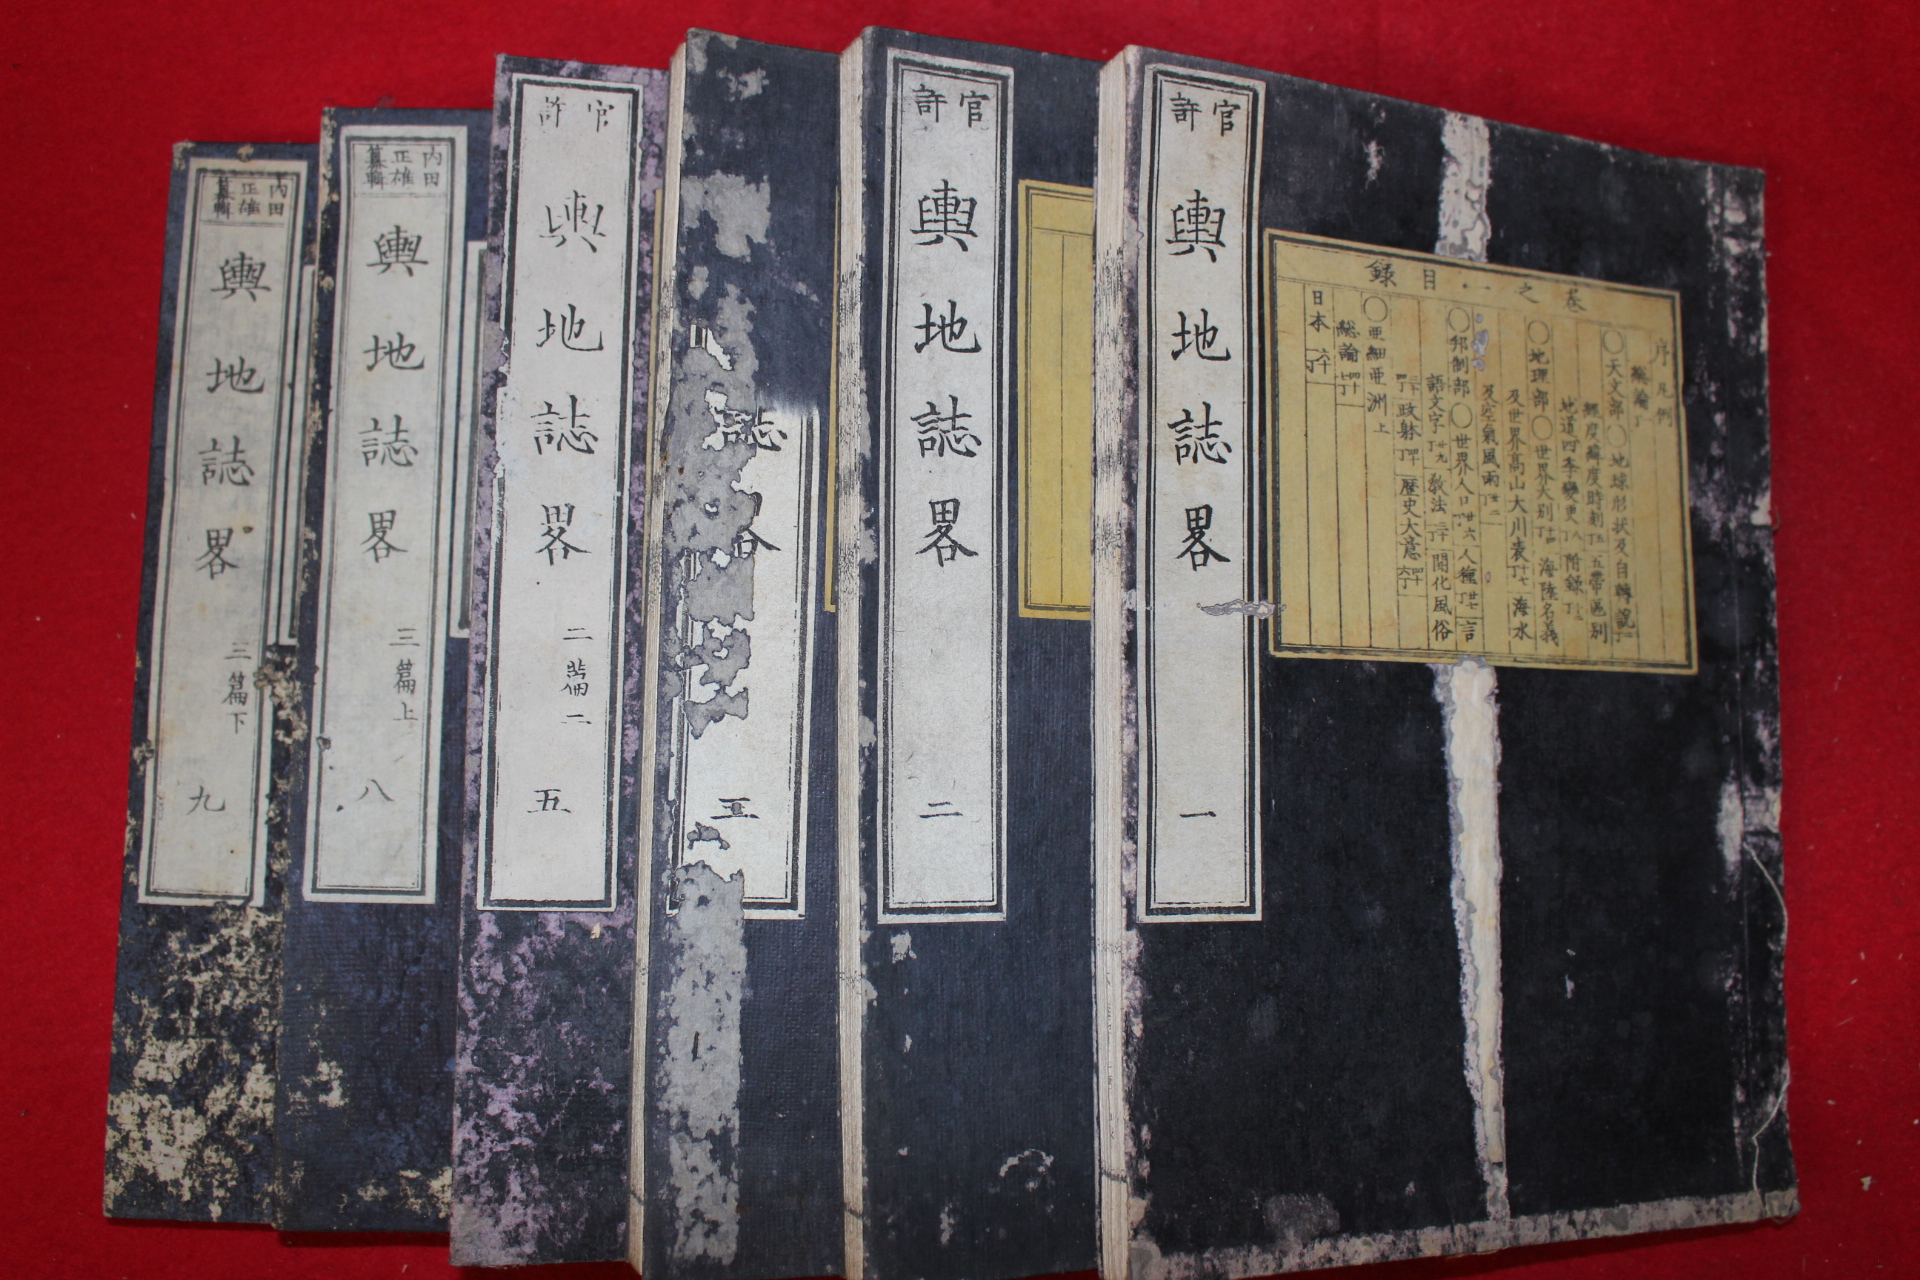 官許
輿地誌畧
一
卷之一目録
序 凡例
總論
○天文部○地球形状及自轉説
經度緯度時刻 五帶區別
地道四季變更 附録
○地理部○世界大別 海陸名義
及世界高山大川表 海水
及空氣風雨
○邦制部○世界人口 人種 言
語文字 教法 開化風俗
政躰 歴史大意
○亜細亜洲上
総論
日本
官許
輿地誌畧
二
誌
三
官許
輿地誌畧
二篇二
五
内田正雄纂輯
輿地誌畧
三篇上
八
内田正雄纂輯
輿地誌畧
三篇下
九